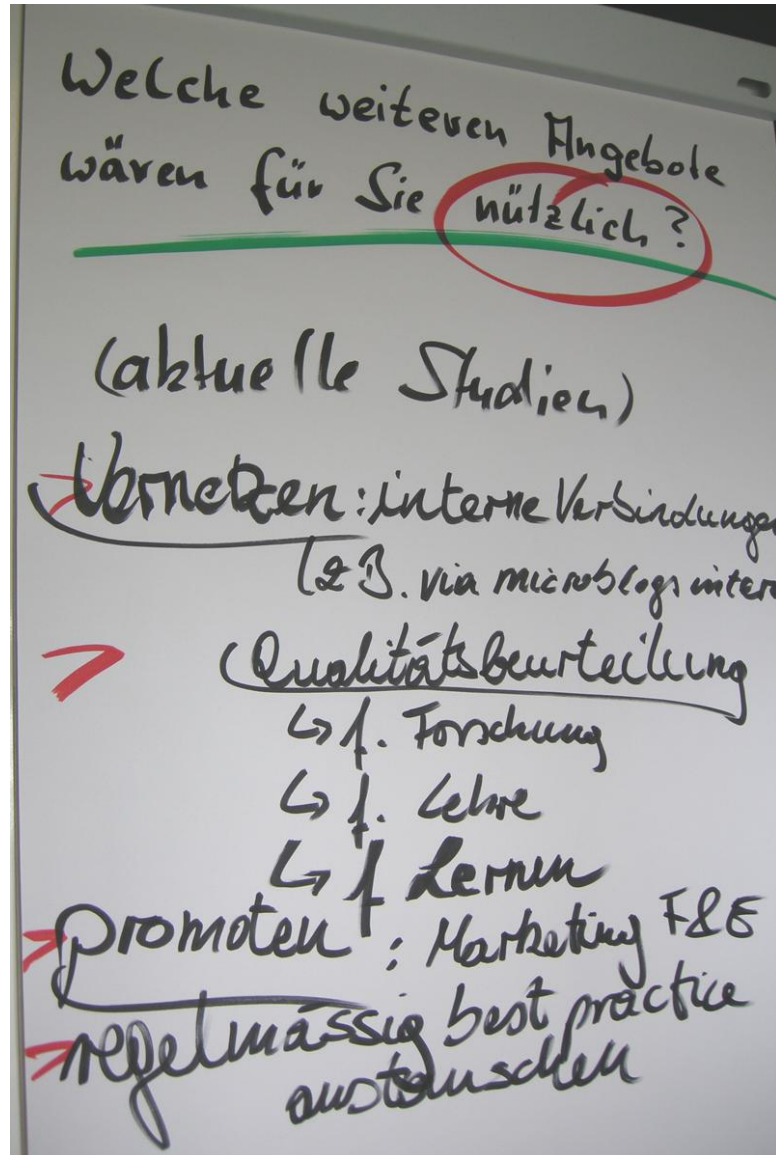 Welche weiteren Angebote
wären für Sie nützlich?
(aktuelle Studien)
Vernetzen: interne Verbindungen
(z.B. via microblogs intern
Qualitätsbeurteilung
↳ f. Forschung
↳ f. Lehre
↳ f Lernen
promoten : Marketing F&E
regelmässig best practice
austauschen